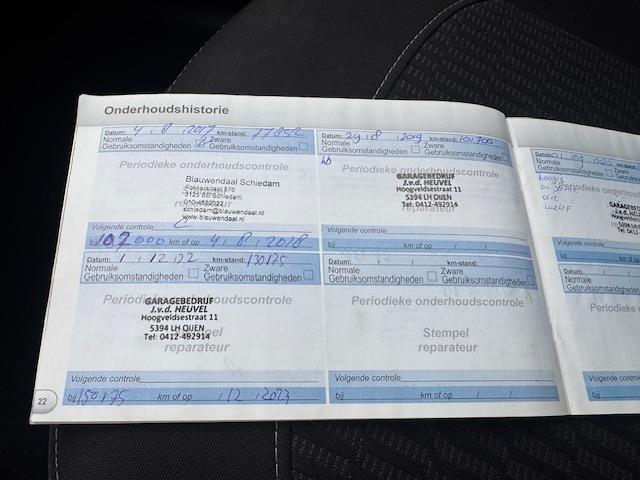 Onderhoudshistorie
Datum: 4 , 8 , 2017 km-stand: 77852
Normale Zware
Gebruiksomstandigheden Gebruiksomstandigheden
Periodieke onderhoudscontrole
Blauwendaal Schiedam
010-4622022
schiedam@blauwendaal.nl
www.blauwendaal.nl
Volgende controle
bij 102000 km of op 4 , 8 , 2018
Datum: 29 , 8 , 2019 km-stand: 101700
Normale Zware
Gebruiksomstandigheden Gebruiksomstandigheden
Periodieke onderhoudscontrole
GARAGEBEDRIJF
J.v.d. HEUVEL
Hoogveldsestraat 11
5394 LH OIJEN
Tel: 0412-492914
Volgende controle
bij km of op / /
Datum: 1 , 12 , 22 km-stand: 130175
Normale Zware
Gebruiksomstandigheden Gebruiksomstandigheden
Periodieke onderhoudscontrole
GARAGEBEDRIJF
J.v.d. HEUVEL
Hoogveldsestraat 11
5394 LH OIJEN
Tel: 0412-492914
Stempel
reparateur
Volgende controle
bij 150175 km of op / 12 / 2023
Datum: / / km-stand:
Normale Zware
Gebruiksomstandigheden Gebruiksomstandigheden
Periodieke onderhoudscontrole
Stempel
reparateur
Volgende controle
bij km of op / /
Normale
Gebruiksomstandigheden
Periodieke
olie
Volgende controle
bij
Datum:
Normale
Gebruiksomstandigheden
Periodieke
Volgende controle
bij
22